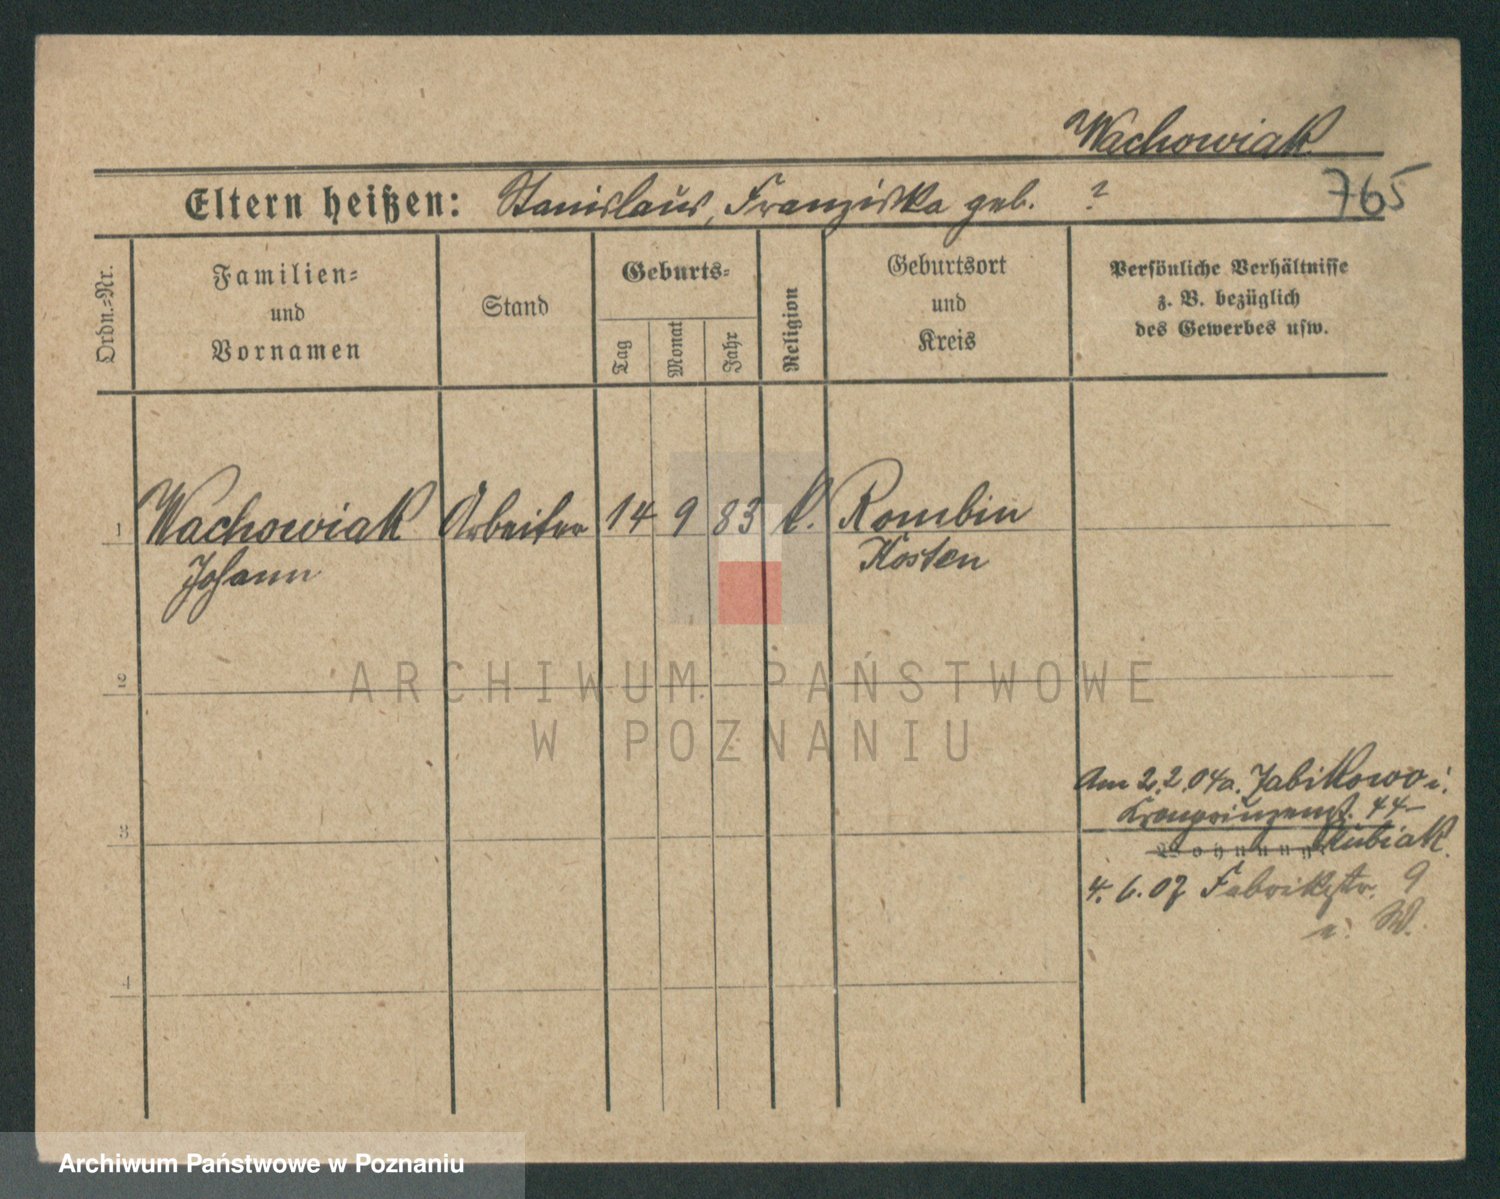 Wachowiak
765
Eltern heißen: Stanislaus, Franziska geb. ?
Ordn.-Nr.
Familien-
und
Vornamen
Stand
Geburts-
Tag
Monat
Jahr
Religion
Geburtsort
und
Kreis
Persönliche Verhältnisse
z. B. bezüglich
des Gewerbes usw.
1 Wachowiak Arbeiter 14 9 83 k. Rombin
Johann Kosten
2
ARCHIWUM PAŃSTWOWE
W POZNANIU
Am 2.2.04 a. Zabikowo i.
Kronprinzenst. 44
3
Wohnung Kubiak
4. 6. 07 Fabrikstr. 9
i. W.
4
Archiwum Państwowe w Poznaniu